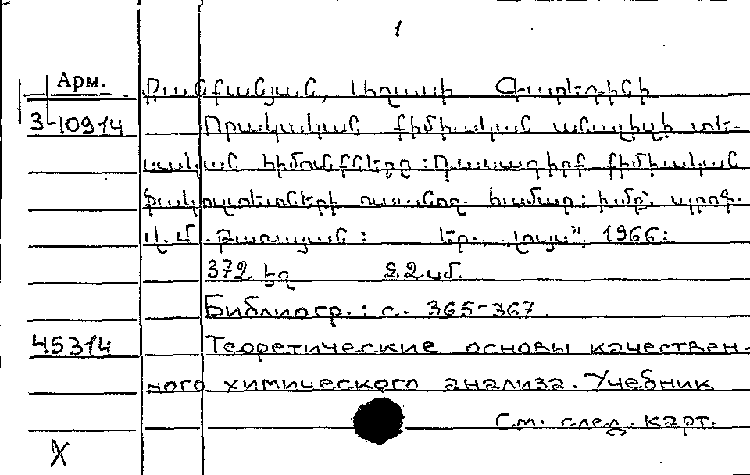 1
Арм.
3-10914 Որակական քիմիական անալիզի տե-
սական հիմունքները: Դասագիրք քիմիական
ֆակուլտետների ուսանող. համար: խմբ. պրոֆ.
Վ. Մ. Թառայան: Եր., „Լույս“, 1966:
372 էջ 22 սմ.
Библиогр.: с. 365-367.
45314 Теоретические основы качествен-
ного химического анализа. Учебник
См. след. карт.
X